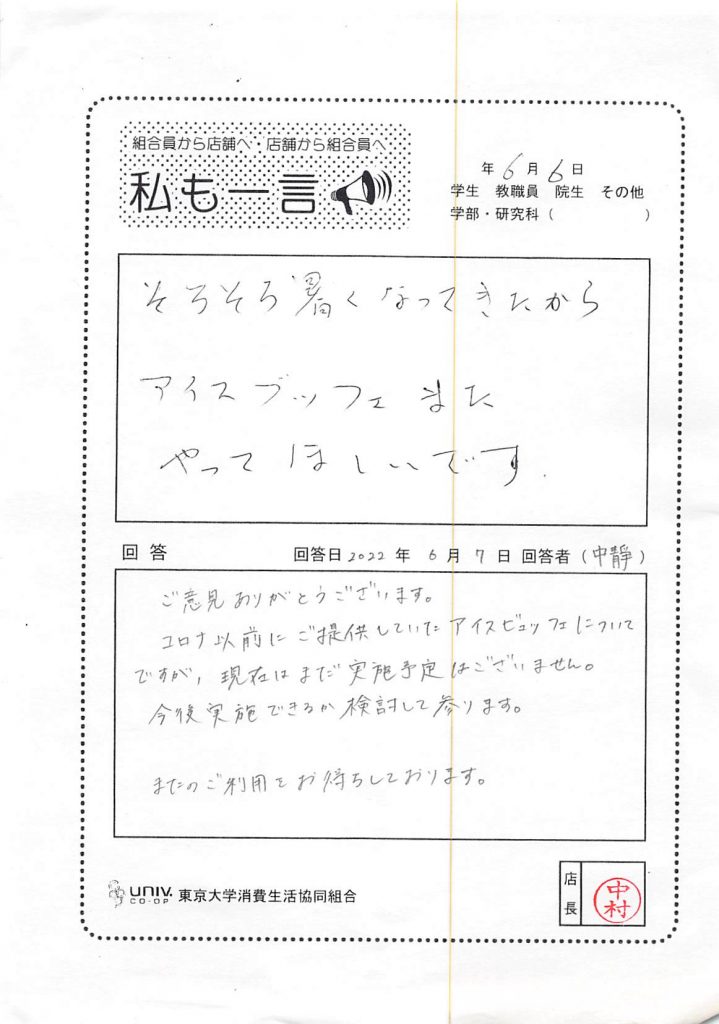 組合員から店舗へ・店舗から組合員へ
私も一言
年 6月 6日
学生 教職員 院生 その他
学部・研究科 ( )
そろそろ暑くなってきたから
アイスブッフェ また
やってほしいです.
回答 回答日 2022 年 6 月 7 日 回答者 (中靜)
ご意見ありがとうございます。
コロナ以前にご提供していたアイスビュッフェについて
ですが, 現在はまだ実施予定はございません。
今後実施できるか検討して参ります。
またのご利用をお待ちしております。
UNIV.
CO-OP
東京大学消費生活協同組合
店長
中村